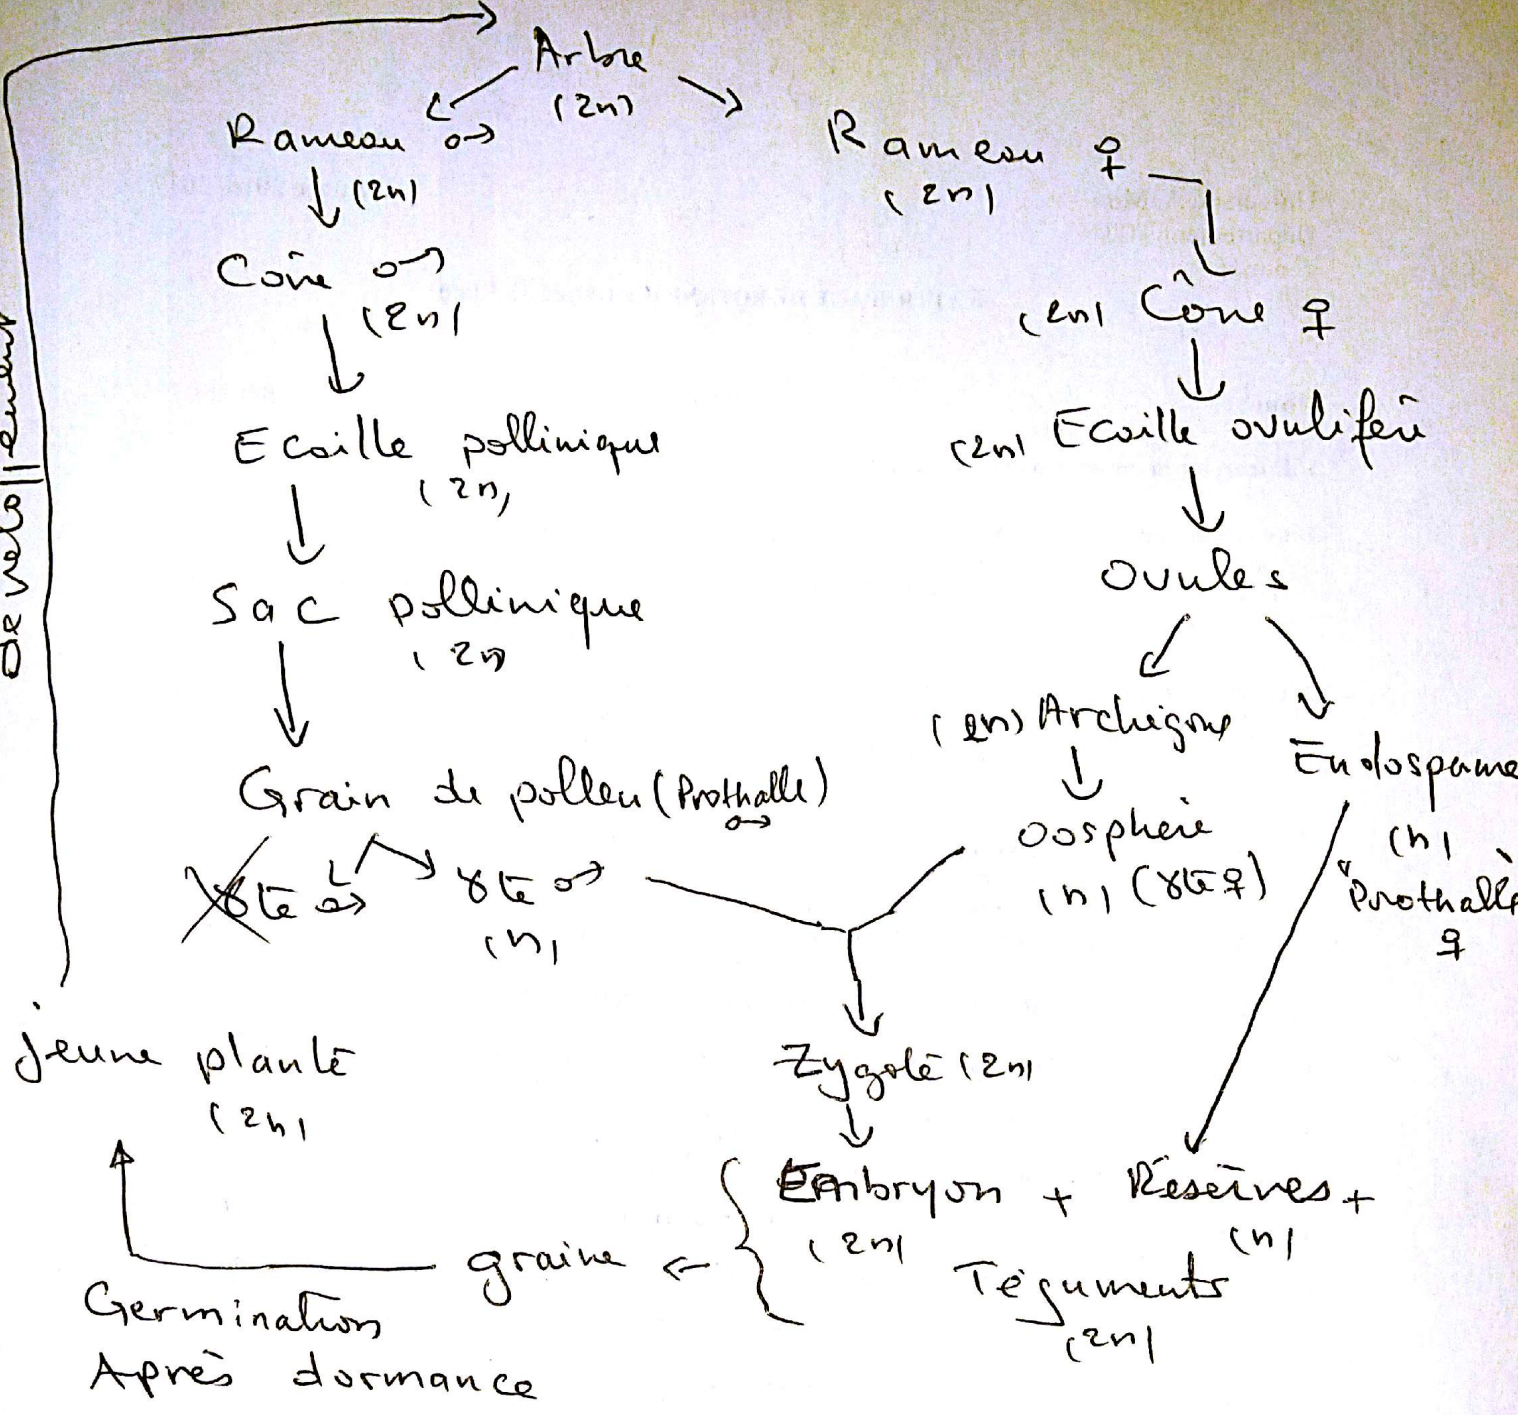 Arbre
(2n)
Rameau ♂
(2n)
Cône ♂
(2n)
Ecaille pollinique
(2n)
Sac pollinique
(2n)
Grain de pollen (Prothalle)
♂
γte ♂
γte ♂
(n)
Rameau ♀
(2n)
(2n) Cône ♀
(2n) Ecaille ovulifère
Ovules
(2n) Archégone
Oosphère
(n) (γte ♀)
Endosperme
(n)
"Prothalle
♀
Zygote (2n)
Embryon + Réserves +
(2n) (n)
Téguments
(2n)
graine
Germination
Après dormance
jeune plante
(2n)